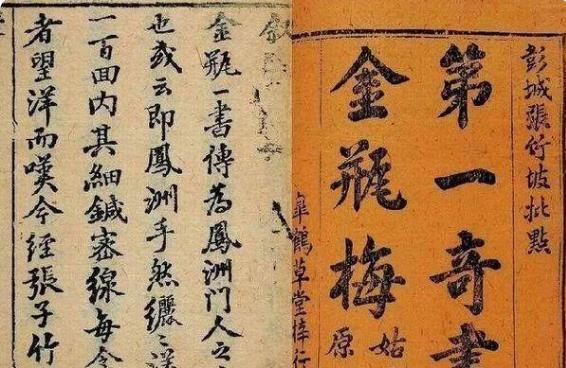 彭城張竹坡批點
第一奇書
金瓶梅
姑
原
皐鶴草堂梓行
叙
金瓶一書傳為鳳洲門人之
也或云即鳳洲手然纚〻
一百回内其細鍼密線每令
者望洋而嘆今經張子竹